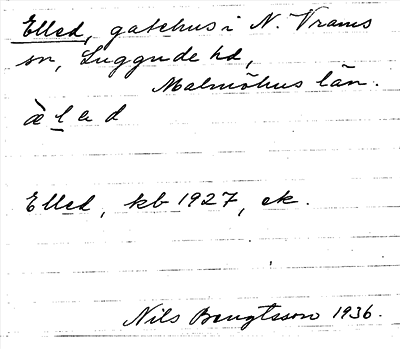 Elled, gatehus i N. Vrams
sn, Luggude hd,
Malmöhus län.
æ̀ l a d
Elled, kb 1927, ek.
Nils Bengtsson 1936.